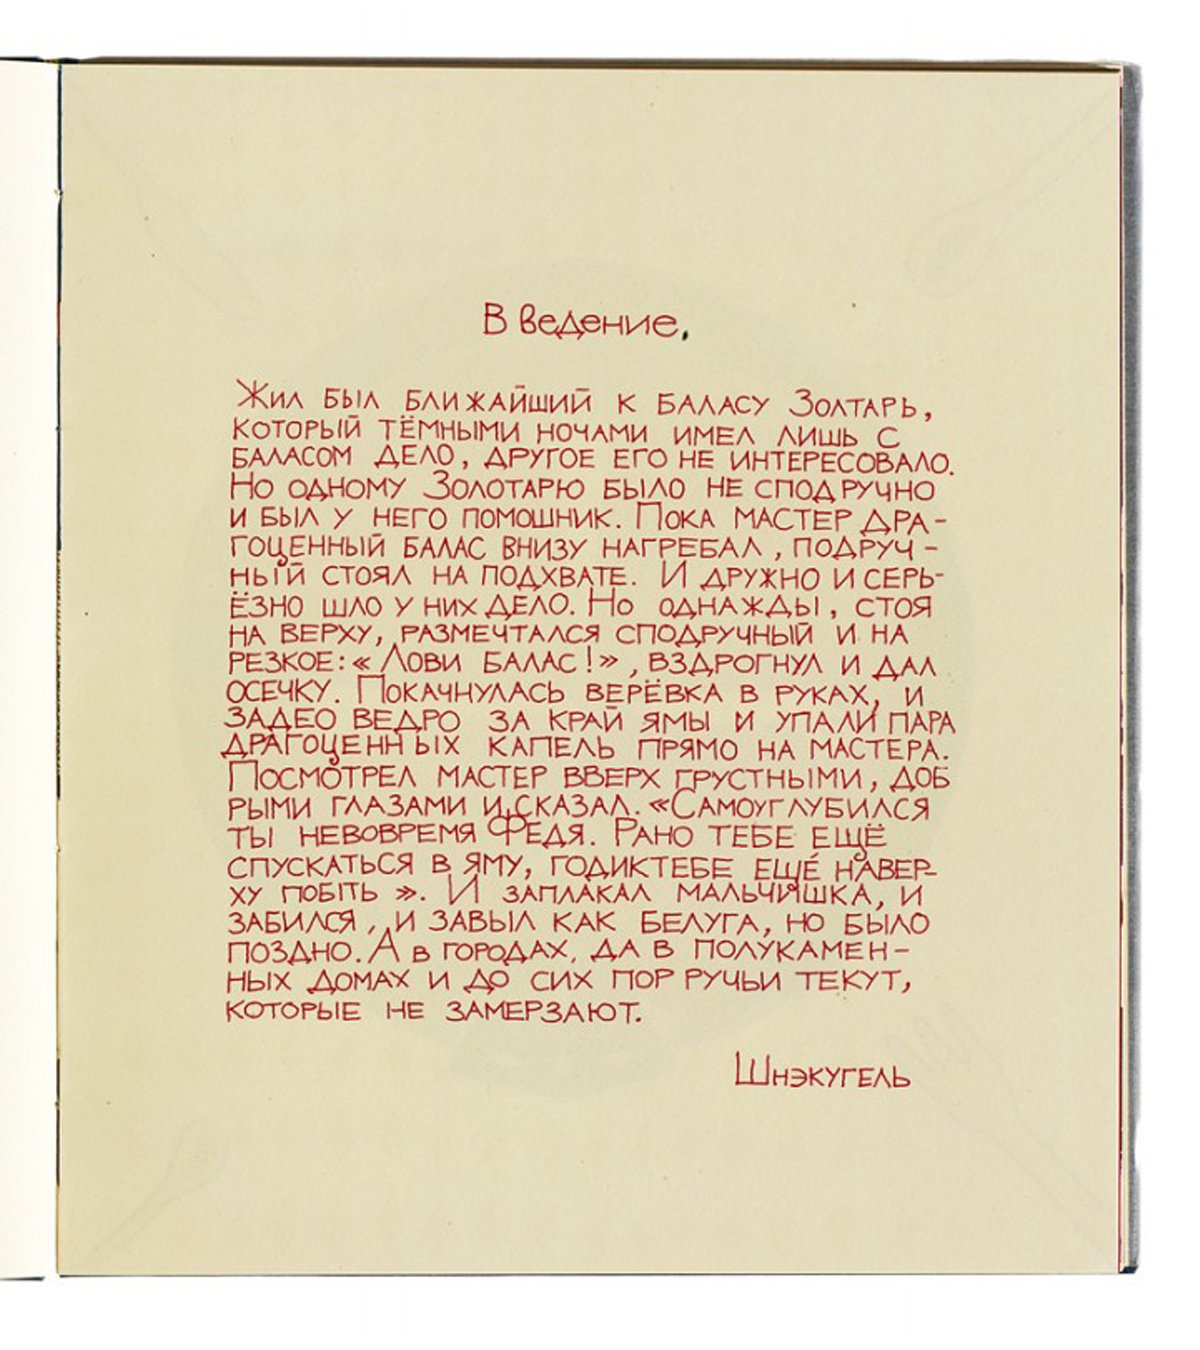 В ведение.
Жил был ближайший к баласу Золтарь,
который тёмными ночами имел лишь с
баласом дело, другое его не интересовало.
Но одному Золотарю было не сподручно
и был у него помошник. Пока мастер дра-
гоценный балас внизу нагребал, подруч-
ный стоял на подхвате. И дружно и серь-
ёзно шло у них дело. Но однажды, стоя
на верху, размечтался сподручный и на
резкое: «Лови балас!», вздрогнул и дал
осечку. Покачнулась верёвка в руках, и
задео ведро за край ямы и упали пара
драгоценных капель прямо на мастера.
Посмотрел мастер вверх грустными, доб
рыми глазами и сказал. «Самоуглубился
ты невовремя Федя. Рано тебе ещё
спускаться в яму, годиктебе ещё навер-
ху побіть». И заплакал мальчишка, и
забился, и завыл как белуга, но было
поздно. А в городах, да в полукамен-
ных домах и до сих пор ручьи текут,
которые не замерзают.
Шнэкугель